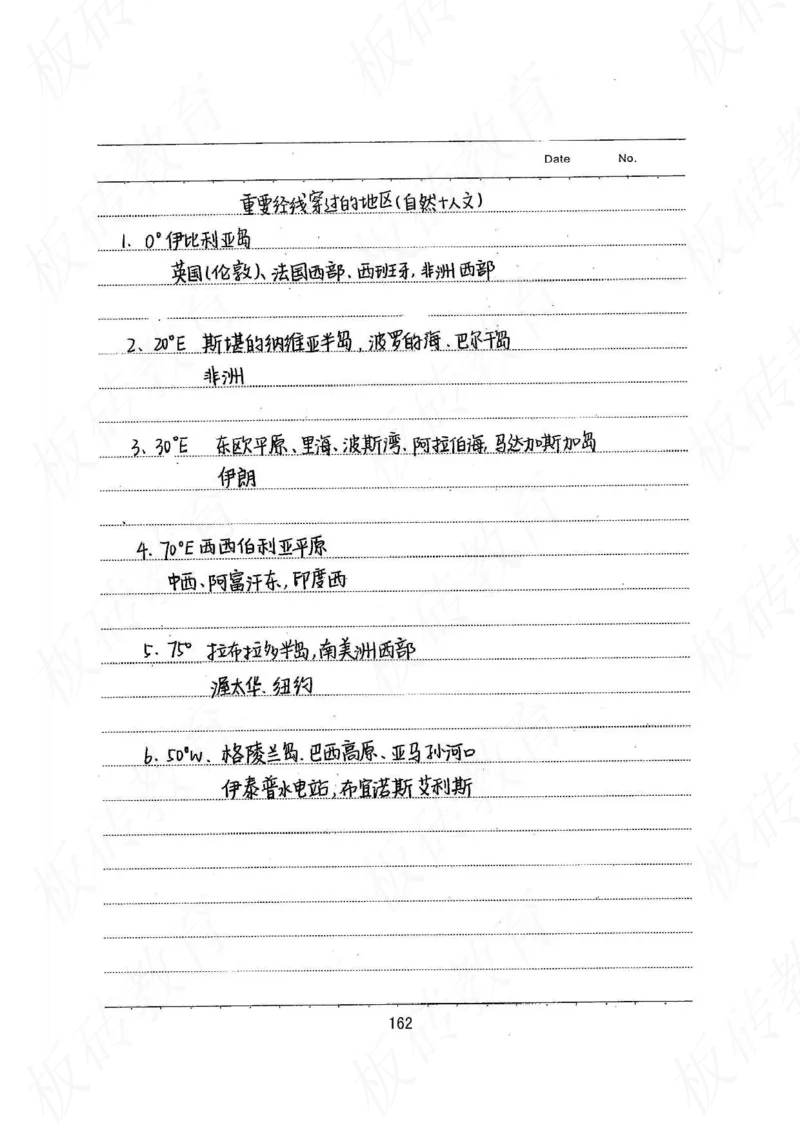 Date No.
重要经线穿过的地区(自然+人文)
1. 0°伊比利亚岛
英国(伦敦)、法国西部、西班牙,非洲西部
2、20°E 斯堪的纳维亚半岛,波罗的海、巴尔干岛
非洲
3、30°E 东欧平原、里海、波斯湾、阿拉伯海,马达加斯加岛
伊朗
4.70°E西西伯利亚平原
中西、阿富汗东,印度西
5.75° 拉布拉多半岛,南美洲西部
渥太华、纽约
6.50°W、格陵兰岛.巴西高原、亚马孙河口
伊泰普水电站,布宜诺斯艾利斯
162
板砖教育